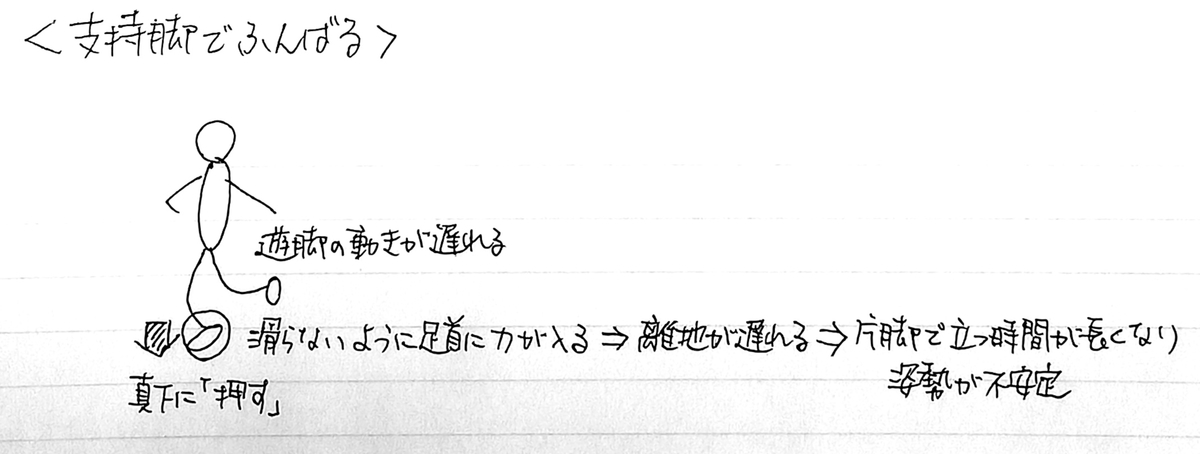 <支持脚でふんばる>
遊脚の動きが遅れる
滑らないように足首に力が入る⇒離地が遅れる⇒片脚で立つ時間が長くなり
姿勢が不安定
真下に「押す」